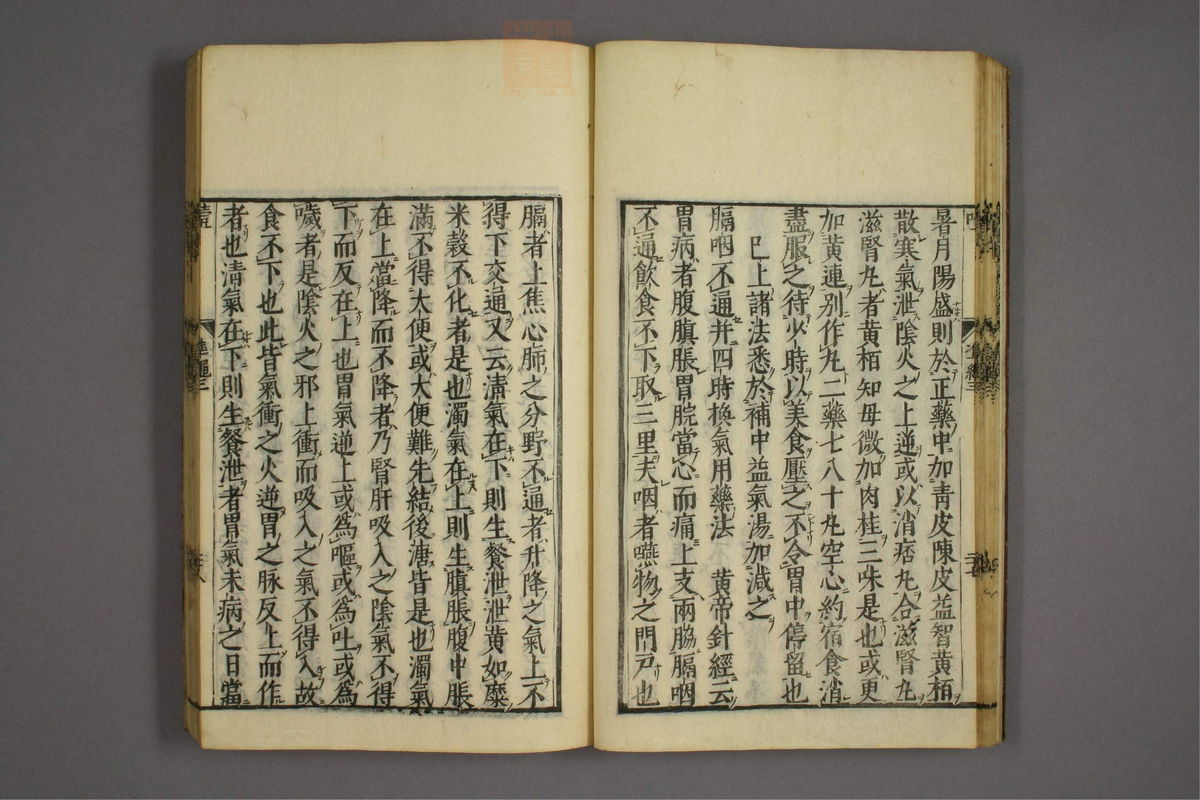 暑月陽盛則於正藥中加青皮陳皮益智黃栢
散寒氣泄陰火之上逆或以消痞丸合滋腎丸
滋腎丸者黃栢知母微加肉桂三味是也或更
加黃連別作丸二藥七八十丸空心約宿食消
盡服之待少時以美食壓之不令胃中停留也
巳上諸法悉於補中益氣湯加減之
膈咽不通并四時換氣用藥法　黃帝針經云
胃病者腹䐜脹胃脘當心而痛上支兩脇膈咽
不通飲食不下取三里夫咽者嚥物之門戸也
膈者上焦心肺之分野不通者升降之氣上不
得下交通又云清氣在下則生餐泄泄黃如糜
米穀不化者是也濁氣在上則生䐜脹腹中脹
滿不得大便或大便難先結後溏皆是也濁氣
在上當降而不降者乃腎肝吸入之陰氣不得
下而反在上也胃氣逆上或為嘔或為吐或為
噦者是陰火之邪上衝而吸入之氣不得入故
食不下也此皆氣衝之火逆胃之脉反上而作
者也清氣在下則生餐泄者胃氣未病之日當